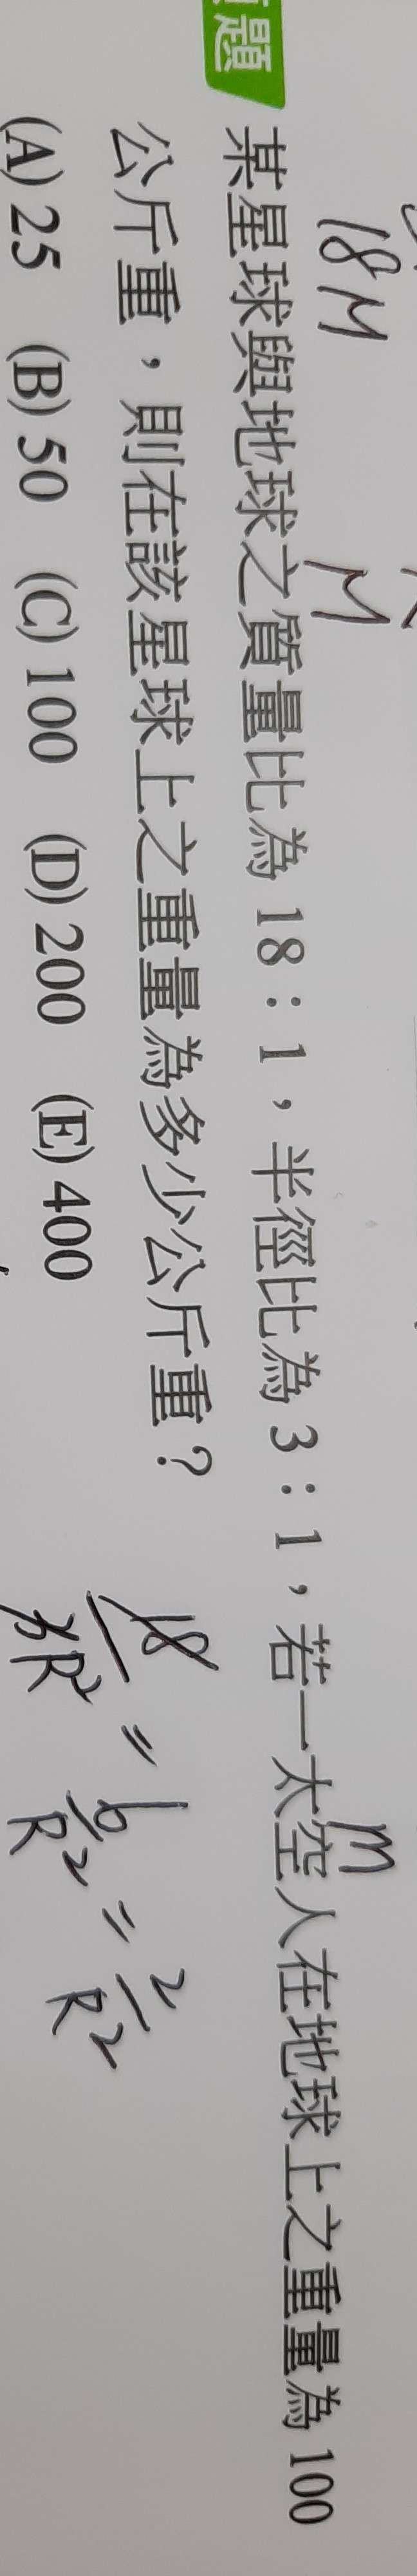 題
18M M m
某星球與地球之質量比為 18：1，半徑比為 3：1，若一太空人在地球上之重量為 100
公斤重，則在該星球上之重量為多少公斤重？
(A) 25 (B) 50 (C) 100 (D) 200 (E) 400
18/3R² = 6/R² = 2/R²